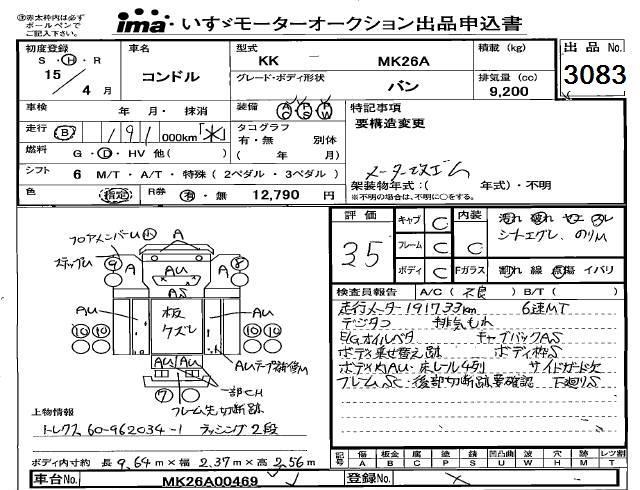 注赤太枠内は必ず
ボールペンで
ご記入下さい。
ima いすゞモーターオークション出品申込書
出品 No.
3083
初度登録
S・H・R
15 / 4 月
車名
コンドル
型式
KK － MK26A
グレード・ボディ形状
バン
積載 (kg)
排気量 (cc)
9,200
車検 年 月・ 抹消
装備 AC PS PW
特記事項
要構造変更
走行 B 191 000km「米」
タコグラフ
有・無 別体
( 年 月)
燃料 G・D・HV 他( )
シフト 6 M/T・A/T・特殊(2ペダル・3ペダル)
架装物年式:( 年式)・不明
※不明の場合は、不明に○をする。
色 指定 R券 有・無 12,790 円
評価
35
キャブ C
フレーム C
ボディ C
内装 C
Fガラス 割れ 線 点傷 イバリ
シートエグレ、のりM
検査員報告 A/C(不良) B/T( )
走行メーター191733km 6速MT
デジタコ 排気もれ
E/Gオイルベタ キャブバックAS
ボデ乗せ替え跡 ボデ枠S
ボデ内AU・床レール4列 サイドガード欠
フレームSC・後部切断跡要確認 下廻りS
フロアメンバーU 小 A
ステップU 9 A A 8
AU
AS
AU 板 AU
クズレ
10 10 10 10
AUテープ補修M
AU AU
一部CH
7
フレーム先切断跡
上物情報
トレクス 60-962034-1 ラッシング2段
ボディ内寸約 長 9.64m×幅 2.37m×高 2.56m
記号 傷 A 板金 B 腐 C 塗 P 錆 S 凹凸曲 U 波 W 穴 H 跡 M レツ割 T
車台No. MK26A00469
登録No.